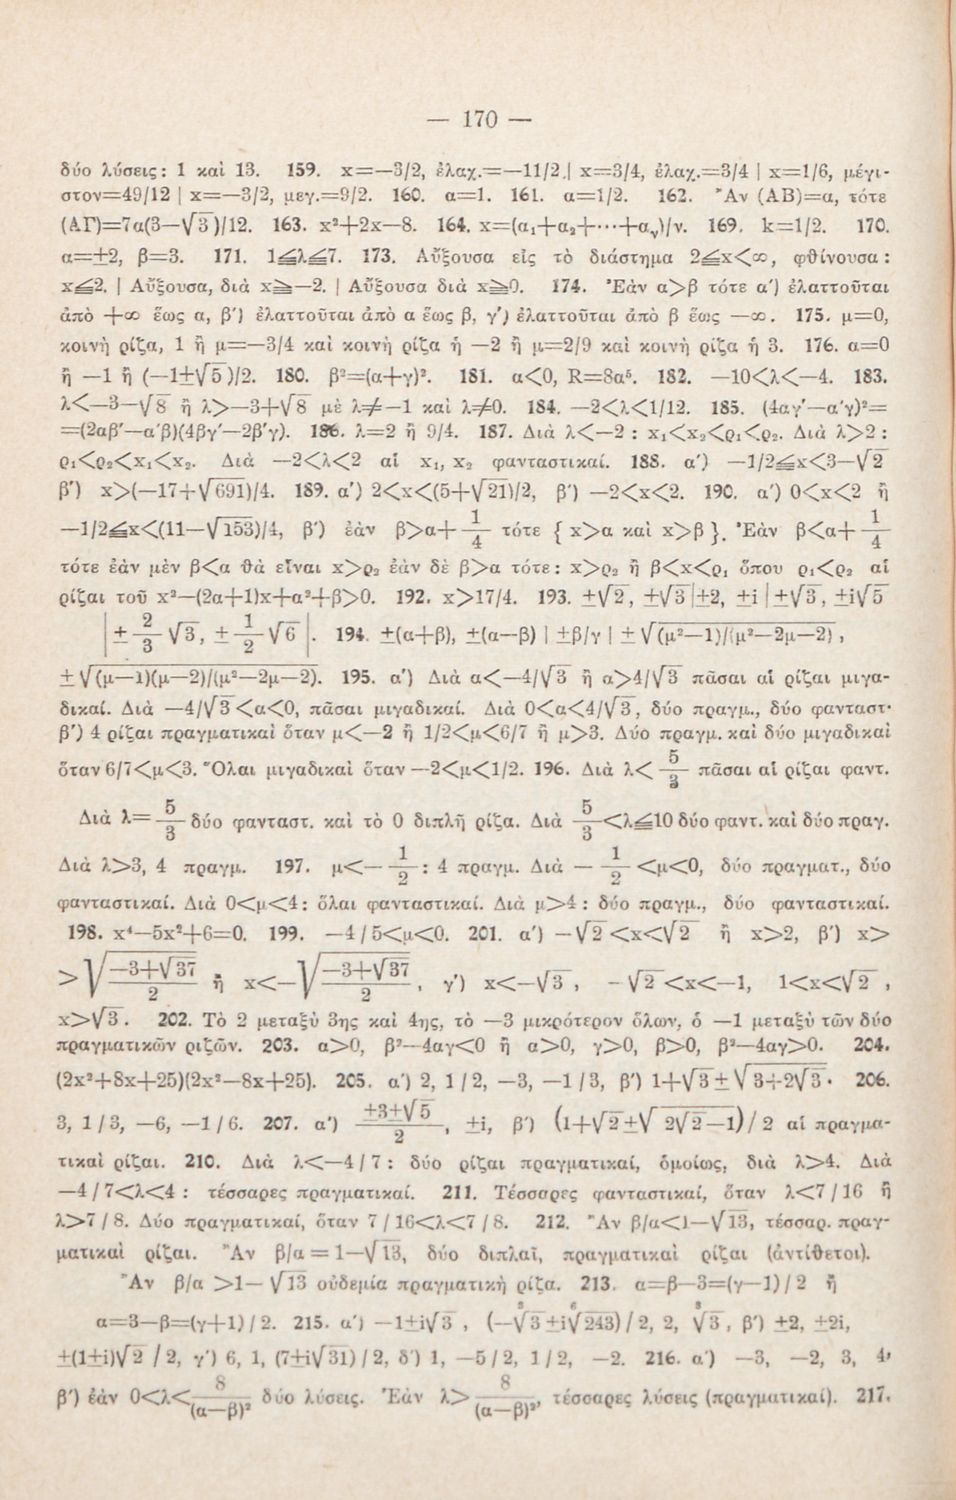 — 170 —
δύο λύσεις: 1 καὶ 13. 159. x=—3/2, ἐλαχ.=—11/2.| x=3/4, ἐλαχ.=3/4 | x=1/6, μέγι-
στον=49/12 | x=—3/2, μεγ.=9/2. 160. α=1. 161. α=1/2. 162. Ἂν (ΑΒ)=α, τότε
(ΑΓ)=7α(3—√3)/12. 163. x²+2x—8. 164. x=(α₁+α₂+···+αᵥ)/ν. 169. k=1/2. 170.
α=±2, β=3. 171. 1≦λ≦7. 173. Αὔξουσα εἰς τὸ διάστημα 2≦x<∞, φθίνουσα:
x≦2. | Αὔξουσα, διὰ x≧—2. | Αὔξουσα διὰ x≧0. 174. Ἐὰν α>β τότε α΄) ἐλαττοῦται
ἀπὸ +∞ ἕως α, β΄) ἐλαττοῦται ἀπὸ α ἕως β, γ΄) ἐλαττοῦται ἀπὸ β ἕως —∞. 175. μ=0,
κοινὴ ρίζα, 1 ἢ μ=—3/4 καὶ κοινὴ ρίζα ἡ —2 ἢ μ=2/9 καὶ κοινὴ ρίζα ἡ 3. 176. α=0
ἢ —1 ἢ (—1±√5)/2. 180. β²=(α+γ)². 181. α<0, R=8α⁵. 182. —10<λ<—4. 183.
λ<—3—√8 ἢ λ>—3+√8 μὲ λ≠—1 καὶ λ≠0. 184. —2<λ<1/12. 185. (4αγ΄—α΄γ)²=
=(2αβ΄—α΄β)(4βγ΄—2β΄γ). 186. λ=2 ἢ 9/4. 187. Διὰ λ<—2 : x₁<x₂<ρ₁<ρ₂. Διὰ λ>2 :
ρ₁<ρ₂<x₁<x₂. Διὰ —2<λ<2 αἱ x₁, x₂ φανταστικαί. 188. α΄) —1/2≦x<3—√2
β΄) x>(—17+√691)/4. 189. α΄) 2<x<(5+√21)/2, β΄) —2<x<2. 190. α΄) 0<x<2 ἢ
—1/2≦x<(11—√153)/4, β΄) ἐὰν β>α+1/4 τότε { x>α καὶ x>β }. Ἐὰν β<α+1/4
τότε ἐὰν μὲν β<α θὰ εἶναι x>ρ₂ ἐὰν δὲ β>α τότε: x>ρ₂ ἢ β<x<ρ₁ ὅπου ρ₁<ρ₂ αἱ
ρίζαι τοῦ x²—(2α+1)x+α²+β>0. 192. x>17/4. 193. ±√2, ±√3 |±2, ±i | ±√3, ±i√5
| ± 2/3 √3, ± 1/2 √6 |. 194. ±(α+β), ±(α—β) | ±β/γ | ± √(μ²—1)/(μ²—2μ—2) ,
± √(μ—1)(μ—2)/(μ²—2μ—2). 195. α΄) Διὰ α<—4/√3 ἢ α>4/√3 πᾶσαι αἱ ρίζαι μιγα-
δικαί. Διὰ —4/√3<α<0, πᾶσαι μιγαδικαί. Διὰ 0<α<4/√3, δύο πραγμ., δύο φανταστ·
β΄) 4 ρίζαι πραγματικαὶ ὅταν μ<—2 ἢ 1/2<μ<6/7 ἢ μ>3. Δύο πραγμ. καὶ δύο μιγαδικαὶ
ὅταν 6/7<μ<3. Ὅλαι μιγαδικαὶ ὅταν —2<μ<1/2. 196. Διὰ λ< 5/3 πᾶσαι αἱ ρίζαι φαντ.
Διὰ λ= 5/3 δύο φανταστ. καὶ τὸ 0 διπλῆ ρίζα. Διὰ 5/3 <λ≦10 δύο φαντ. καὶ δύο πραγ.
Διὰ λ>3, 4 πραγμ. 197. μ<— 1/2 : 4 πραγμ. Διὰ — 1/2 <μ<0, δύο πραγματ., δύο
φανταστικαί. Διὰ 0<μ<4: ὅλαι φανταστικαί. Διὰ μ>4: δύο πραγμ., δύο φανταστικαί.
198. x⁴—5x²+6=0. 199. —4/5<μ<0. 201. α΄) —√2<x<√2 ἢ x>2, β΄) x>
> √(—3+√37)/2 ἢ x<—√(—3+√37)/2 , γ΄) x<—√3 , -√2<x<—1, 1<x<√2 ,
x>√3. 202. Τὸ 2 μεταξὺ 3ης καὶ 4ης, τὸ —3 μικρότερον ὅλων, ὁ —1 μεταξὺ τῶν δύο
πραγματικῶν ριζῶν. 203. α>0, β²—4αγ<0 ἢ α>0, γ>0, β>0, β²—4αγ>0. 204.
(2x²+8x+25)(2x²—8x+25). 205. α΄) 2, 1/2, —3, —1/3, β΄) 1+√3±√3+2√3· 206.
3, 1/3, —6, —1/6. 207. α΄) (±3±√5)/2, ±i, β΄) (1+√2±√2√2—1)/2 αἱ πραγμα-
τικαὶ ρίζαι. 210. Διὰ λ<—4/7: δύο ρίζαι πραγματικαί, ὁμοίως, διὰ λ>4. Διὰ
—4/7<λ<4 : τέσσαρες πραγματικαί. 211. Τέσσαρες φανταστικαί, ὅταν λ<7/16 ἢ
λ>7/8. Δύο πραγματικαί, ὅταν 7/16<λ<7/8. 212. Ἂν β/α<1—√13, τέσσαρ. πραγ-
ματικαὶ ρίζαι. Ἂν β/α=1—√13, δύο διπλαῖ, πραγματικαὶ ρίζαι (ἀντίθετοι).
Ἂν β/α >1—√13 οὐδεμία πραγματικὴ ρίζα. 213. α=β—3=(γ—1)/2 ἢ
α=3—β=(γ+1)/2. 215. α΄) —1±i√3 , (—⁸√3±i⁶√243)/2, 2, ⁸√3, β΄) ±2, ±2i,
±(1±i)√2/2, γ΄) 6, 1, (7±i√31)/2, δ΄) 1, —5/2, 1/2, —2. 216. α΄) —3, —2, 3, 4,
β΄) ἐὰν 0<λ< 8/(α—β)² δύο λύσεις. Ἐὰν λ> 8/(α—β)², τέσσαρες λύσεις (πραγματικαί). 217.